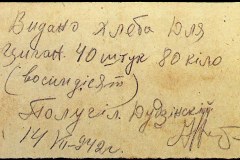 Видано Хлеба Для
Циган. 40 штук 80 кіло
(восимдісят)
Получіл. Дудзінскій
14 VII-942г.